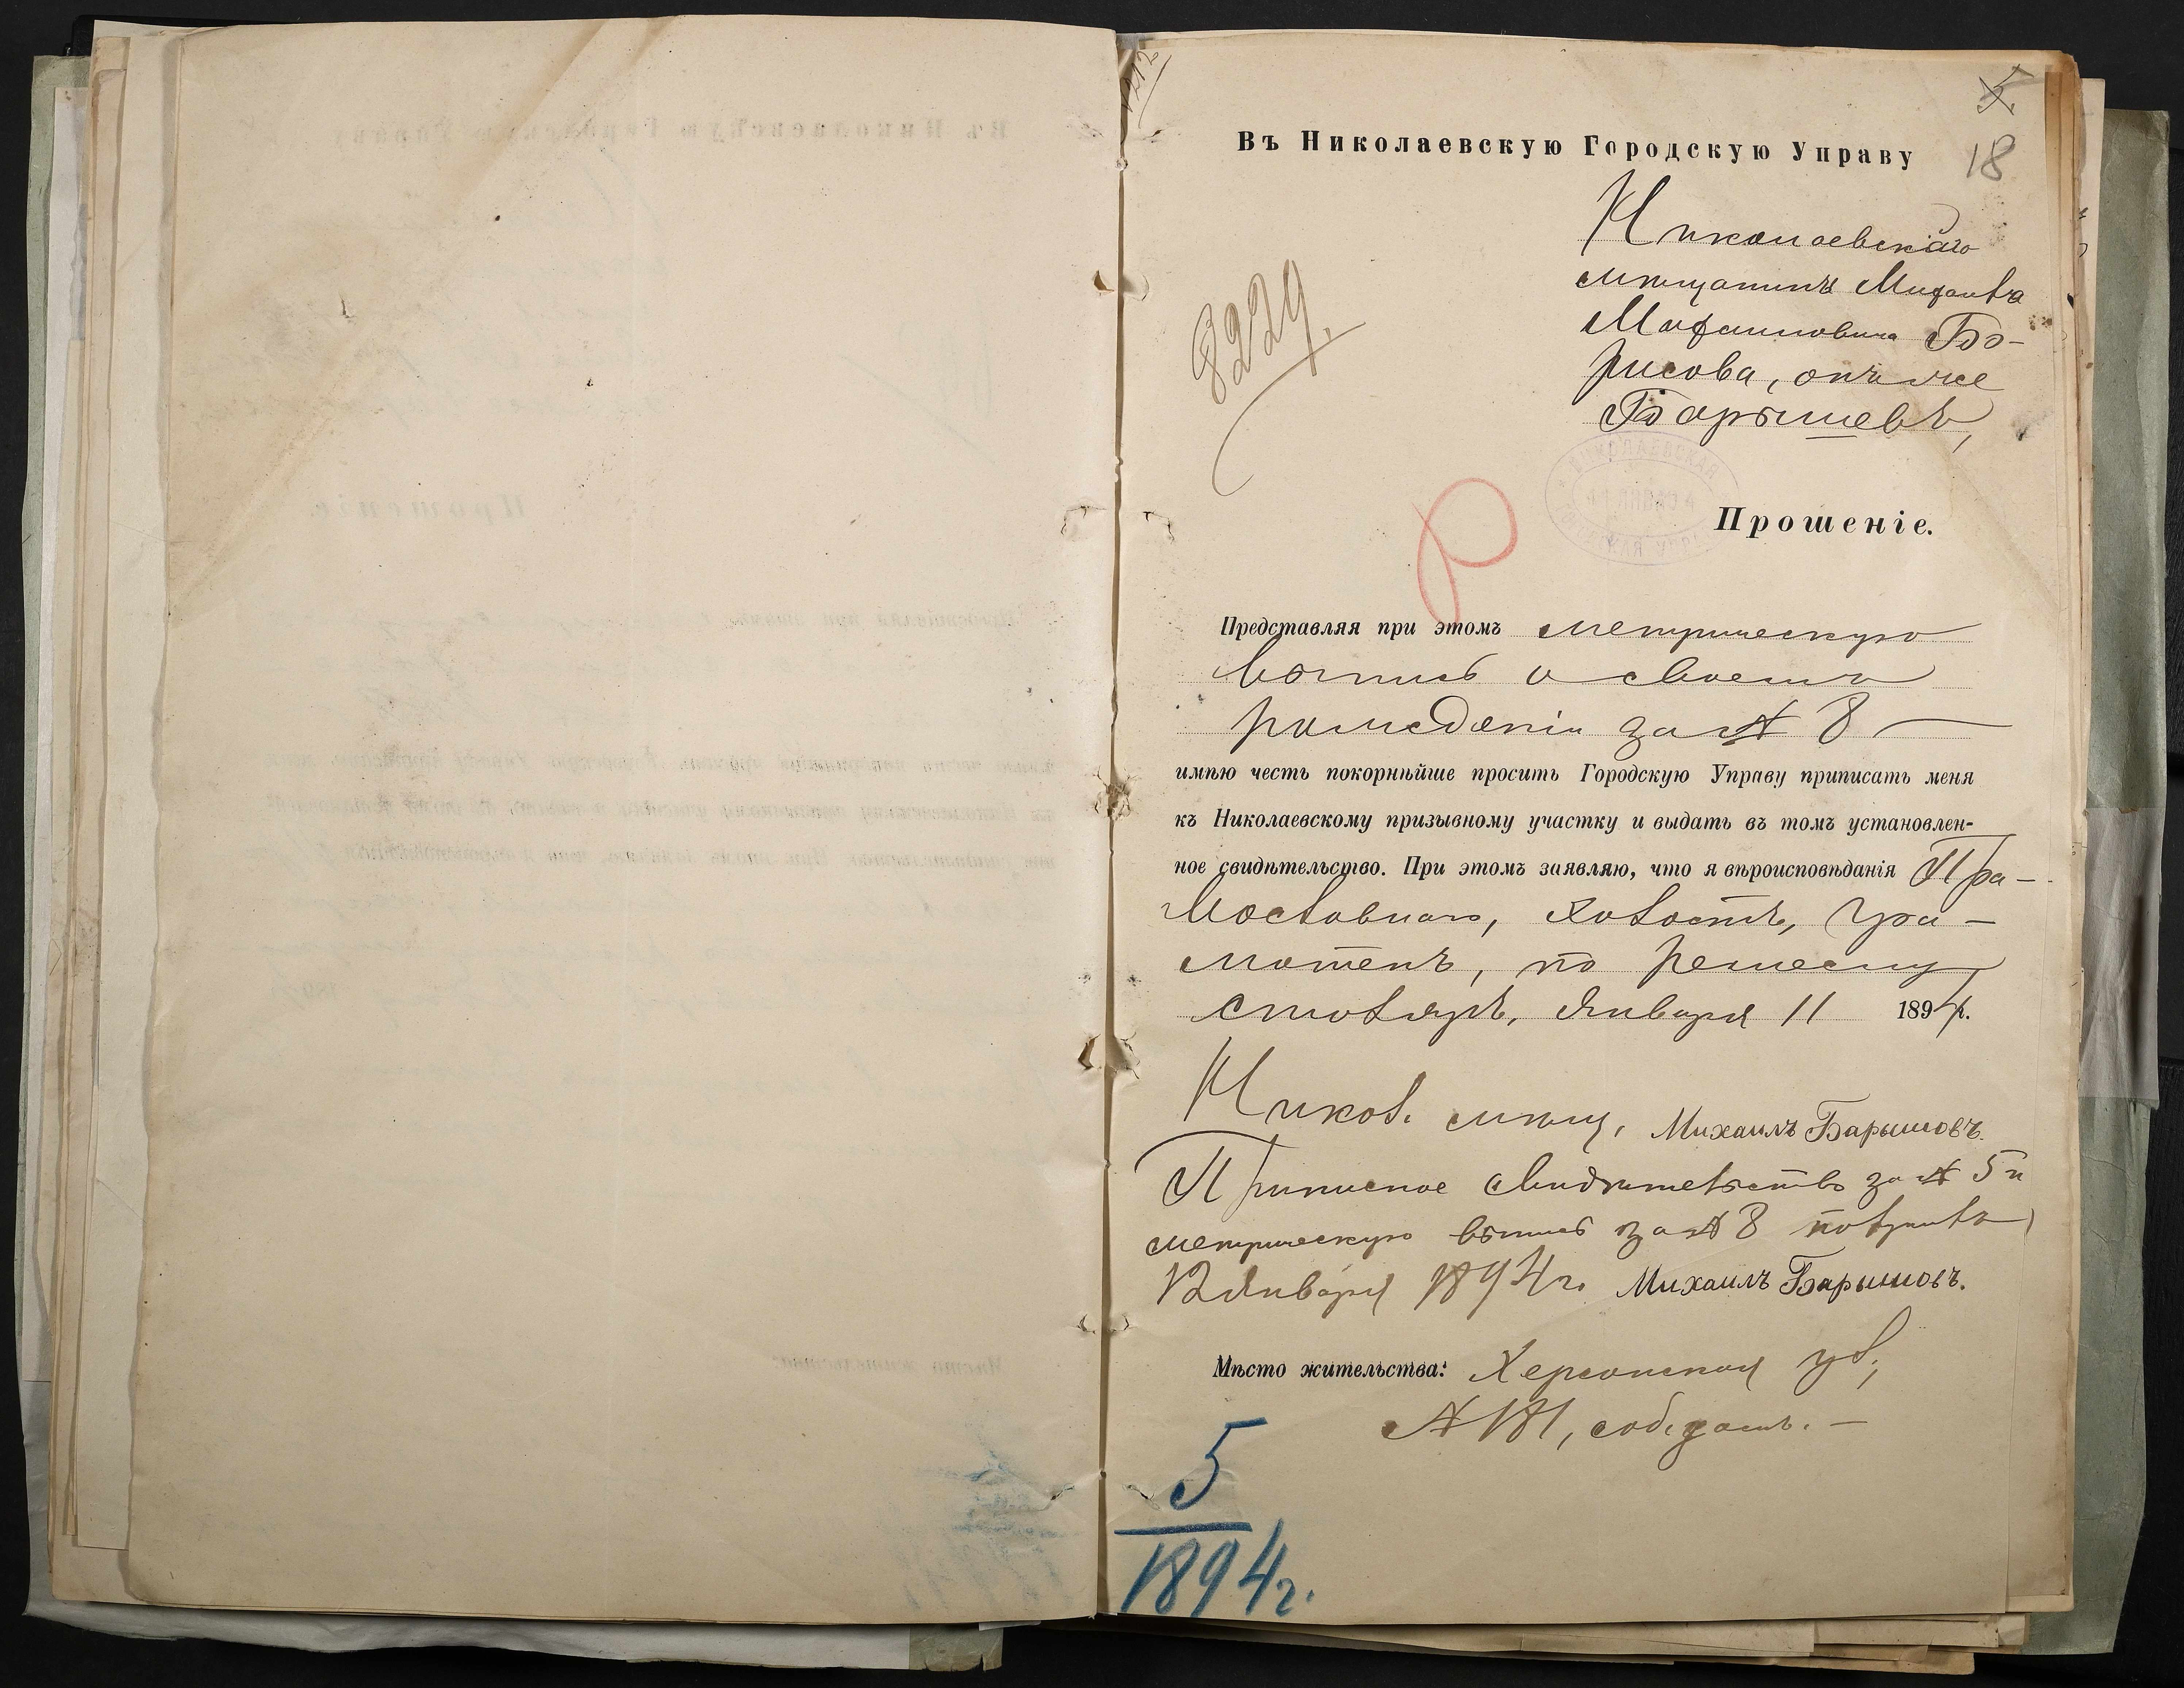 5.
18
Въ Николаевскую Городскую Управу
Николаевскаго
мѣщанина Михаила
Михаиловича Бо-
рисова, онъ же
Барышевъ,
8229.
НИКОЛАЕВСКАЯ
Прошеніе.
Представляя при этомъ метрическую
выпись о своемъ
рожденіи за № 8 —
имѣю честь покорнѣйше просить Городскую Управу приписать меня
къ Николаевскому призывному участку и выдать въ томъ установлен-
ное свидѣтельство. При этомъ заявляю, что я вѣроисповѣданія Пра-
вославнаго, холостъ, гра-
мотенъ, по ремеслу
столяръ, Января 11 1894 г.
Никол. мѣщ. Михаилъ Барышовъ.
Приписное свидѣтельство за № 5 и
метрическую выпись за № 8 получилъ
12 Января 1894 г. Михаилъ Барышовъ.
Мѣсто жительства: Херсонская ул.,
№ 181, соб. домъ. —
5
1894 г.